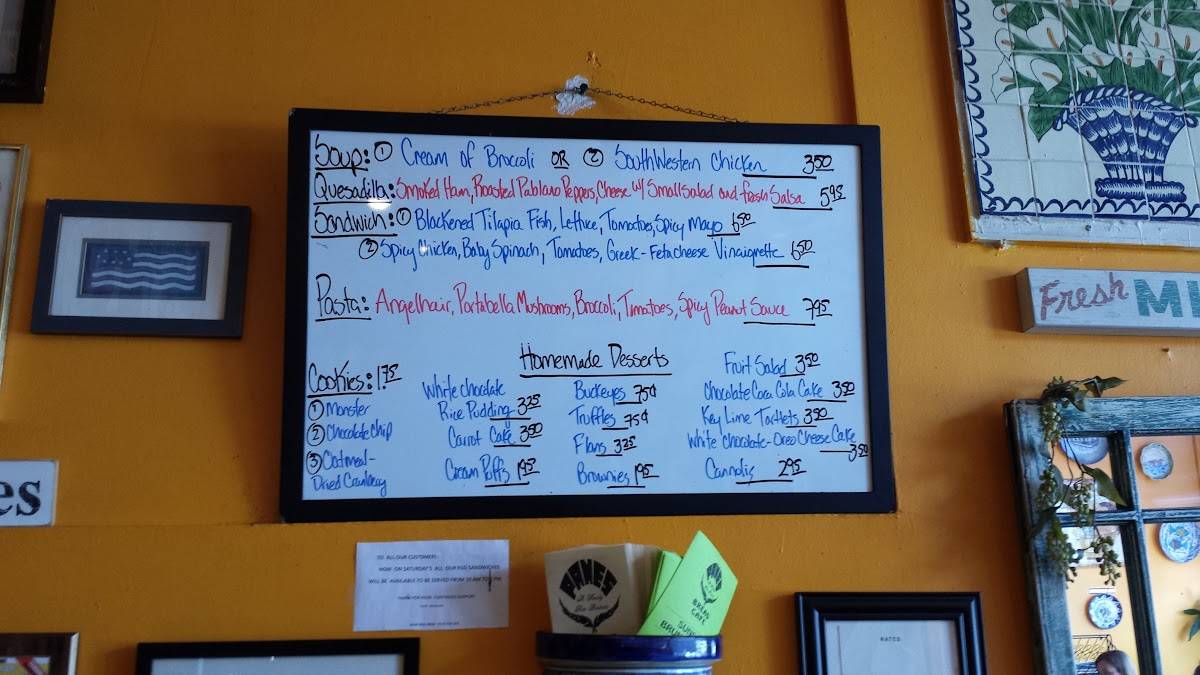 Soup: ① Cream of Broccoli OR ② SouthWestern Chicken 3.50
Quesadilla: Smoked Ham, Roasted Pablano Peppers, Cheese w/ Small Salad and fresh Salsa 5.95
Sandwich: ① Blackened Tilapia Fish, Lettuce, Tomatoes, Spicy Mayo 6.50
② Spicy Chicken, Baby Spinach, Tomatoes, Greek-Feta cheese Vinaigrette 6.50
Pasta: Angelhair, Portabella Mushrooms, Broccoli, Tomatoes, Spicy Peanut Sauce 7.95
Homemade Desserts
Cookies: 1.75
① Monster
② Chocolate chip
③ Oatmeal-
Dried Cranberry
White chocolate
Rice Pudding 3.25
Carrot Cake 3.50
Cream Puffs 1.95
Buckeyes 75¢
Truffles 75¢
Flans 3.25
Brownies 1.95
Fruit Salad 3.50
Chocolate Coca Cola Cake 3.50
Key Lime Tartlets 3.50
White chocolate-Oreo Cheese Cake
3.50
Cannolis 2.95
Fresh
es
TO ALL OUR CUSTOMERS
NOW ON SATURDAY'S ALL OUR EGG SANDWICHES
WILL BE AVAILABLE TO BE SERVED FROM
PANES
BREAD
CAFE
RATES